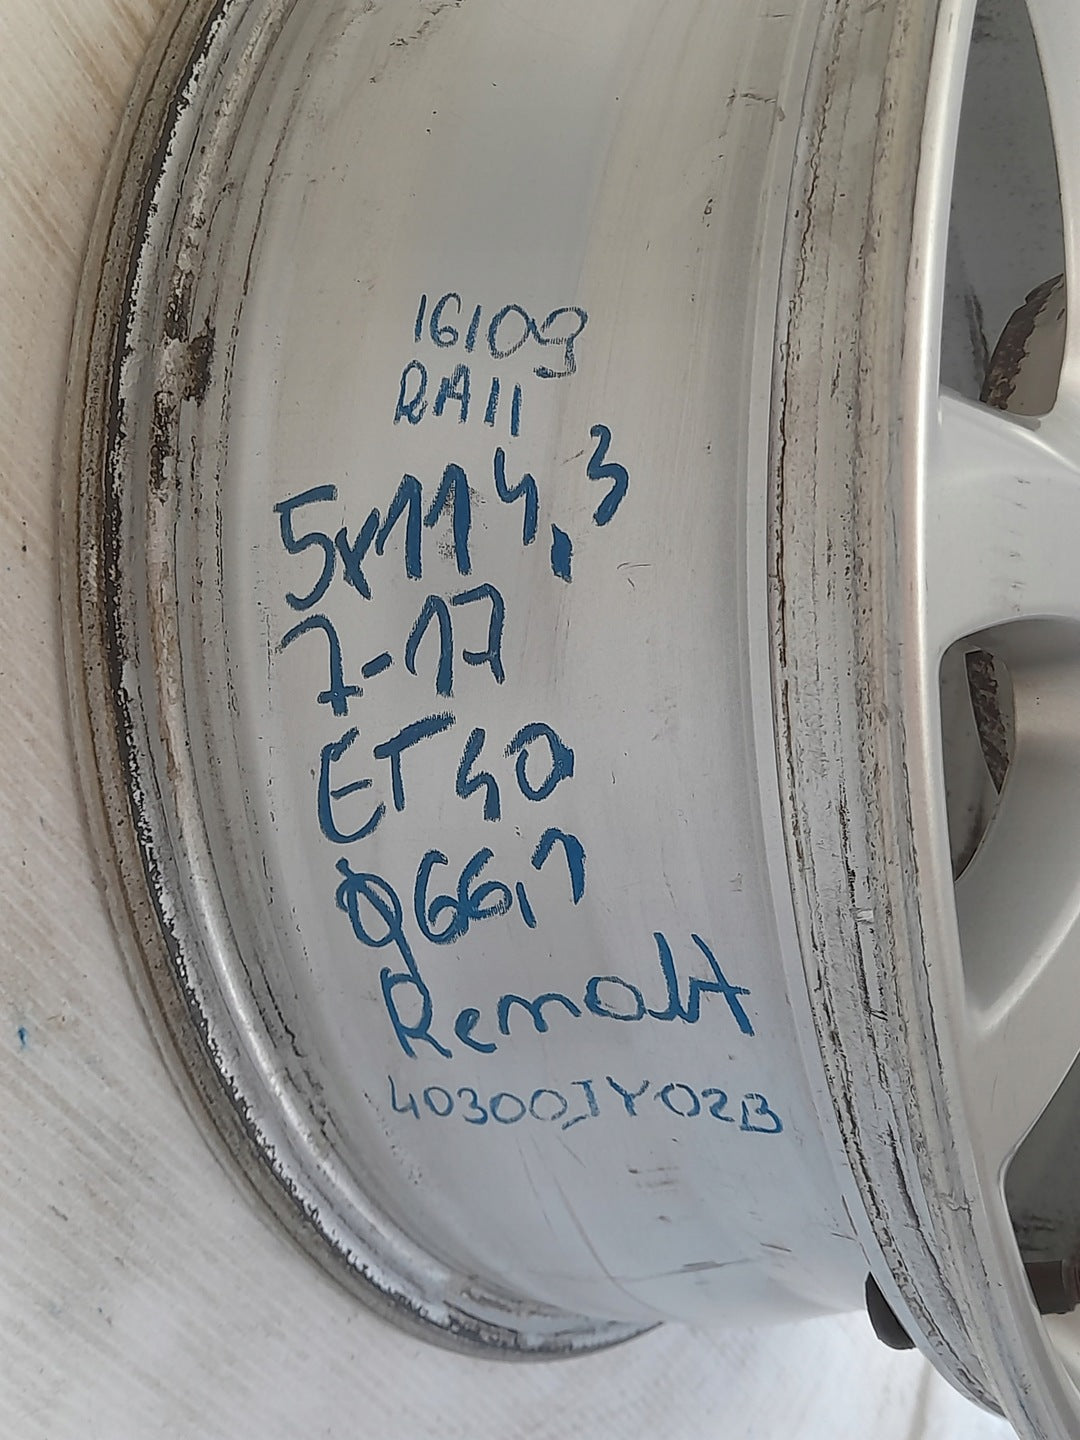 16109
RA11
5x114,3
7-17
ET40
Ø66,1
Renalt
40300JY02B